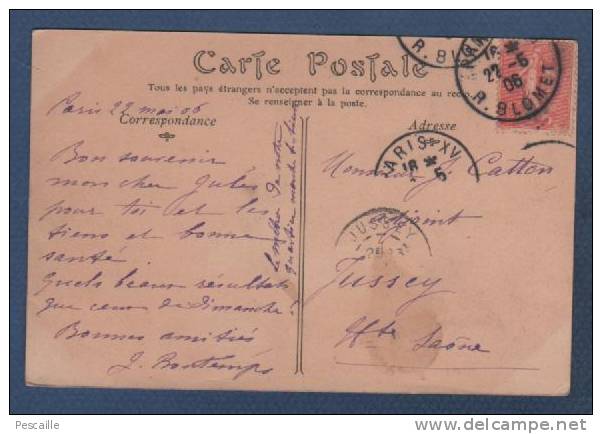 Carte Postale
Tous les pays étrangers n'acceptent pas la correspondance au recto
Se renseigner à la poste.
Correspondance
Adresse
Paris 22 mai 06
Bon souvenir
mon cher Jules
pour toi et les
tiens et bonne
santé
Quels beaux résultats
que ceux de dimanche!
Bonnes amitiés
J. Bontemps
Le métro de notre
quartier
Monsieur J. Catton
adjoint
Jussey
Hte Saône
R. BLOMET
22 -5
06
R. BLOMET
PARIS XV
5
JUSSEY
Pescaille
www.delcampe.net